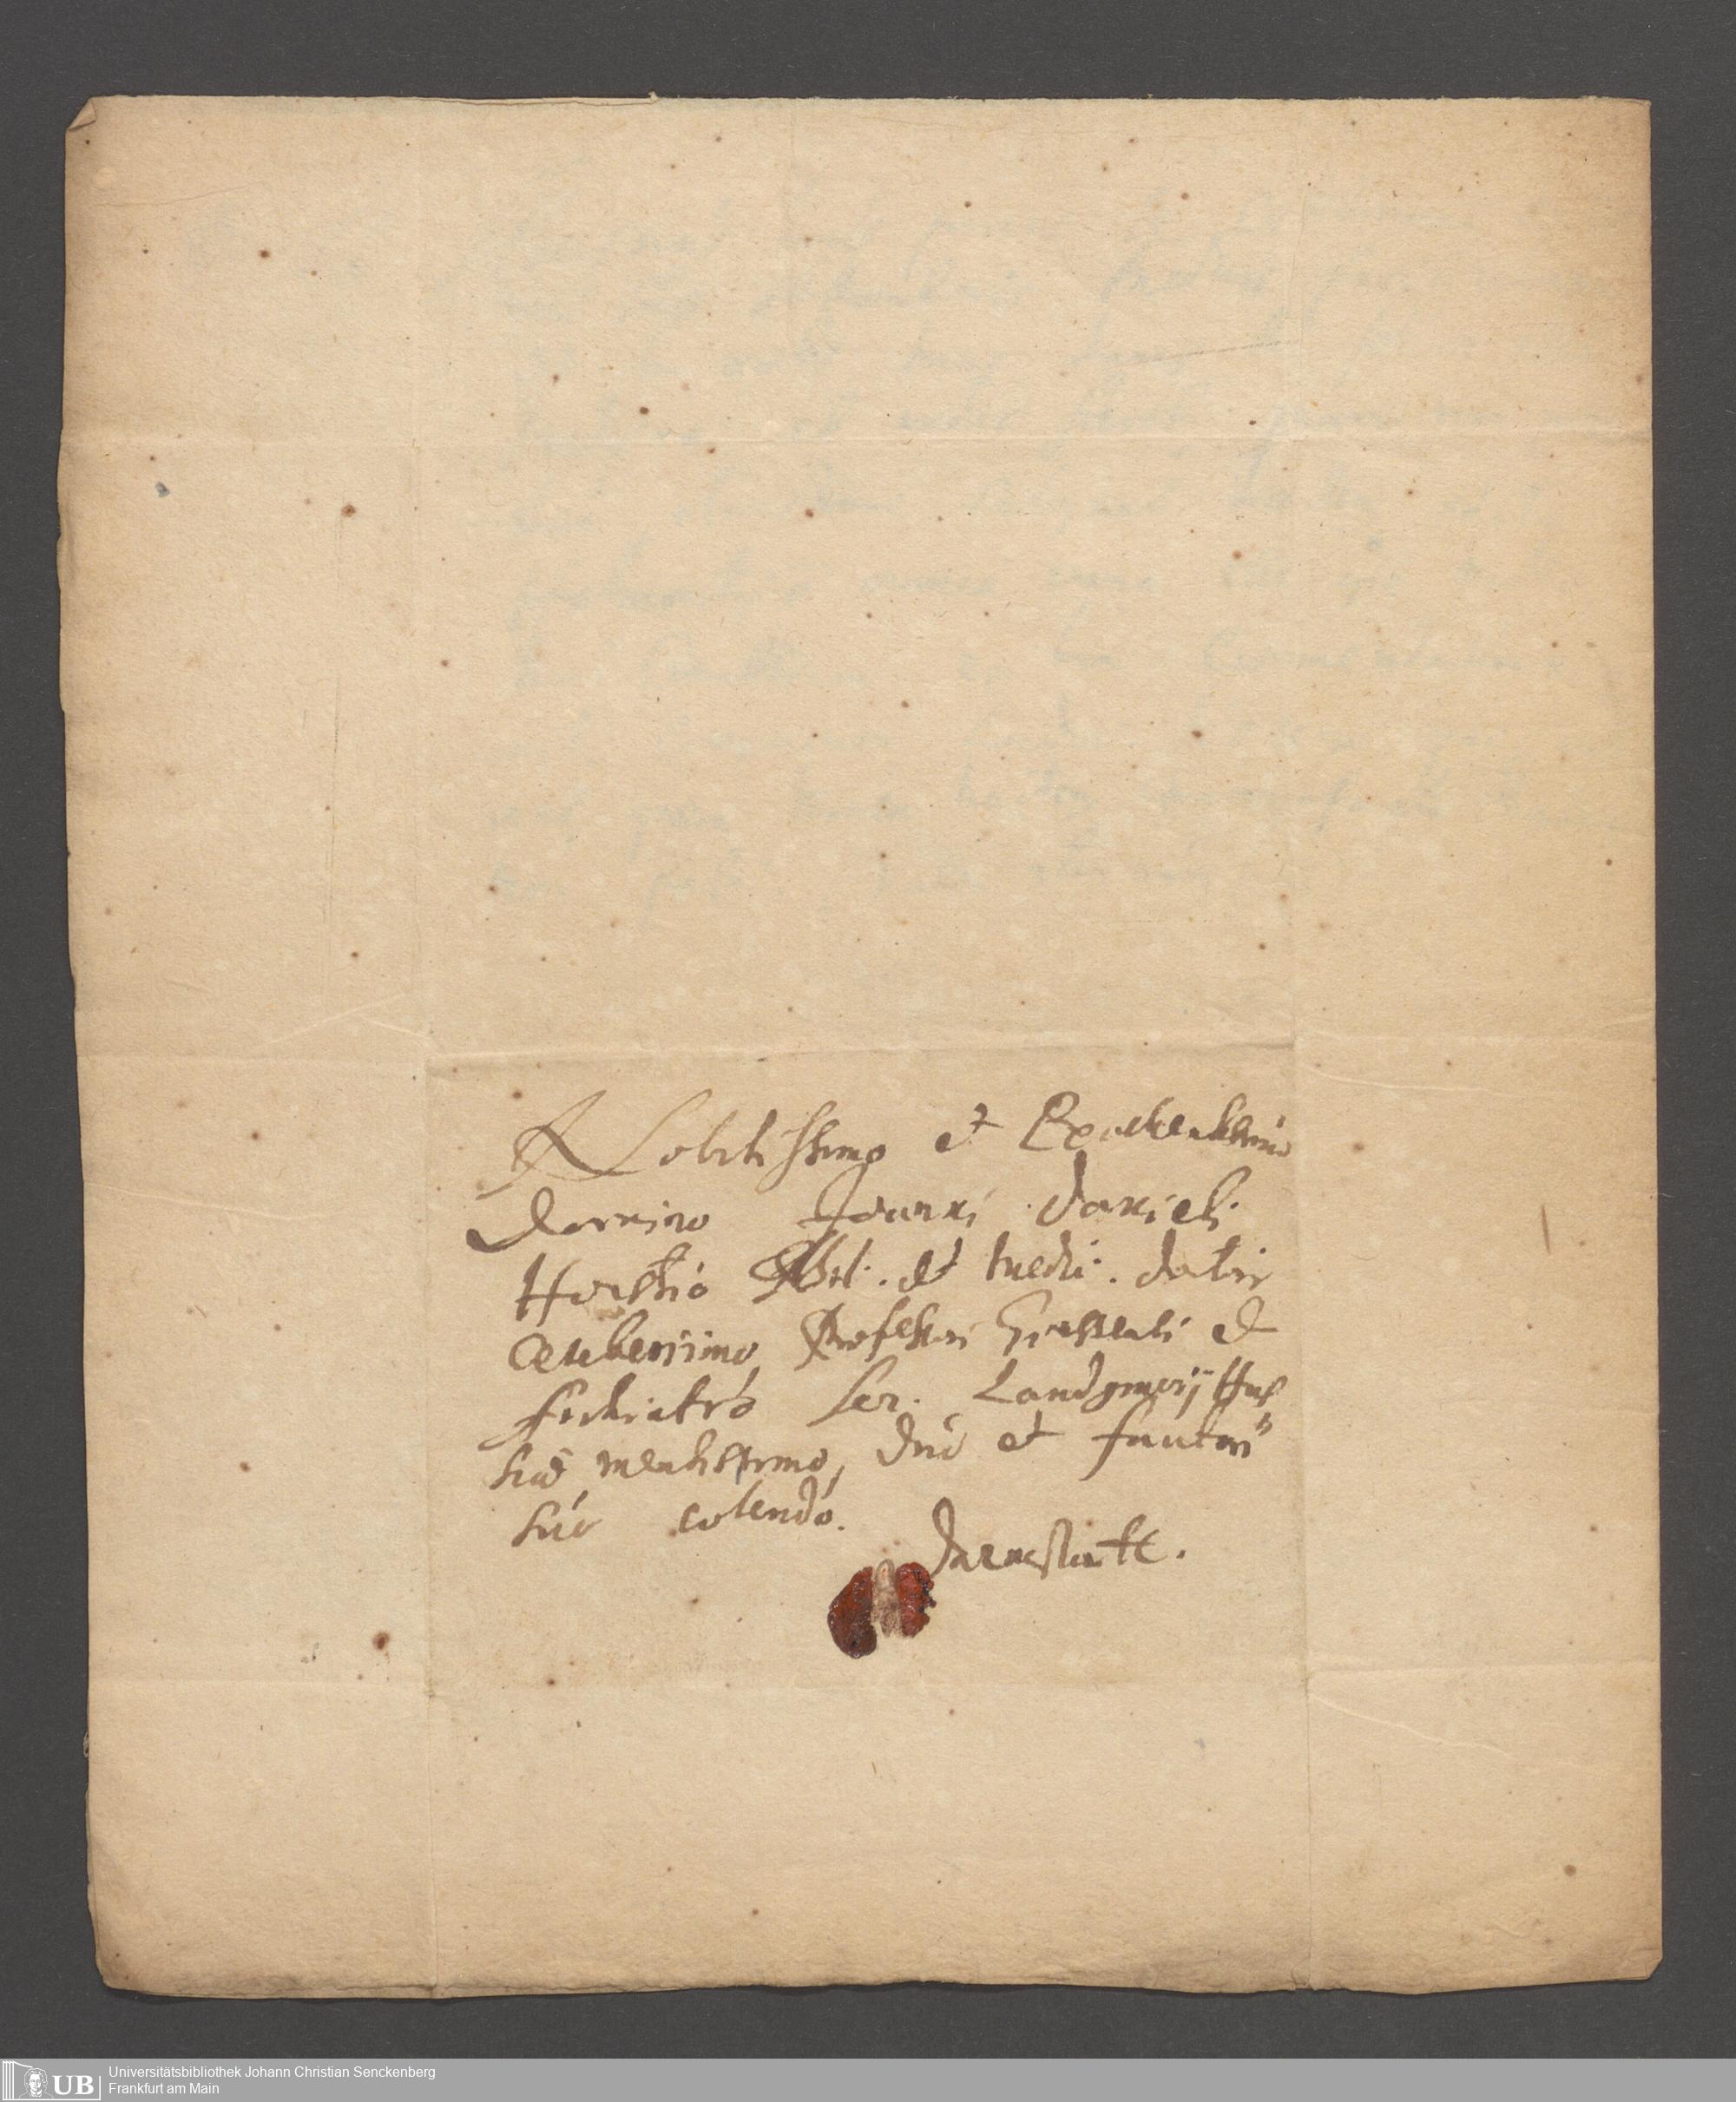 Nobilissimo et Excellentissimo
Domino Joanni Danieli
Horstio Phil. et Medic. doctori
Celeberrimo Professori Giessensi et
Archiatro Ser. Landgravij Hass
suo colendo.
dno et fautori
Darmstatt.
Universitätsbibliothek Johann Christian Senckenberg
Frankfurt am Main
UB